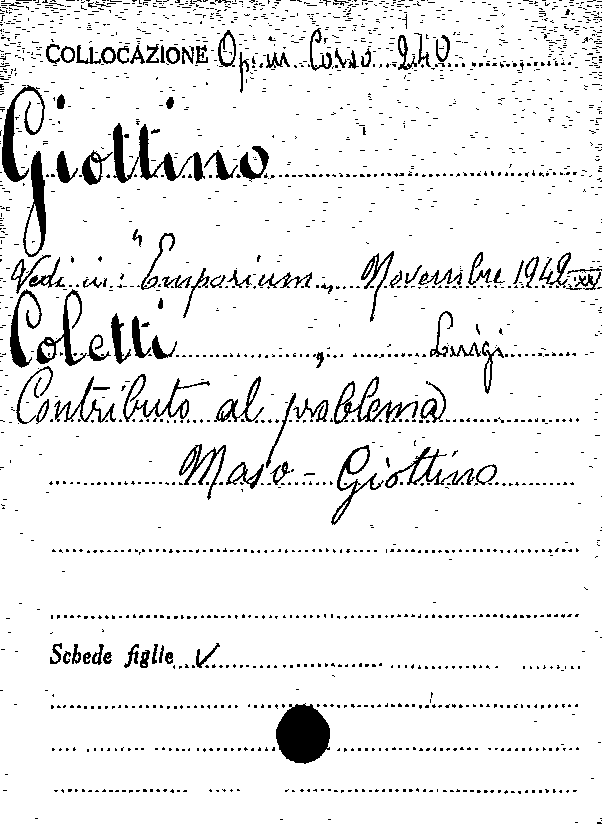 COLLOCAZIONE Op. in Corso 240
Giottino
Vedi in: "Emporium„ Novembre 1942 XX
Coletti , Luigi
Contributo al problema
Maso - Giottino
Schede figlie ✓